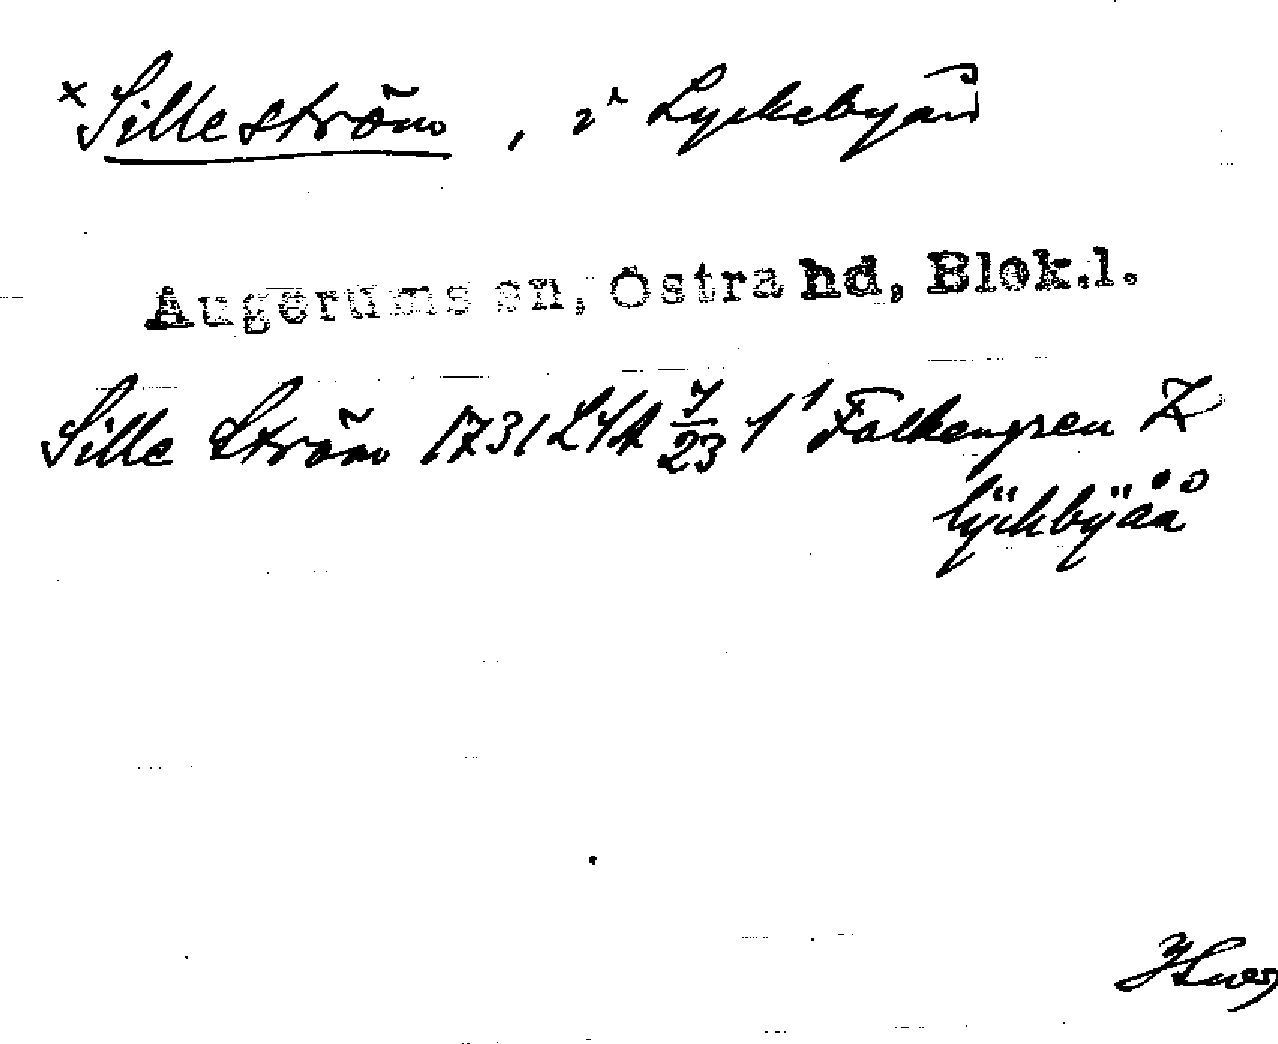 × Silleström, i Lyckebyån
Augerums sn, Östra hd, Blek.l.
Sille Ström 1731 LSA 7/23 1¹ Falkengren K
lÿckbÿåå